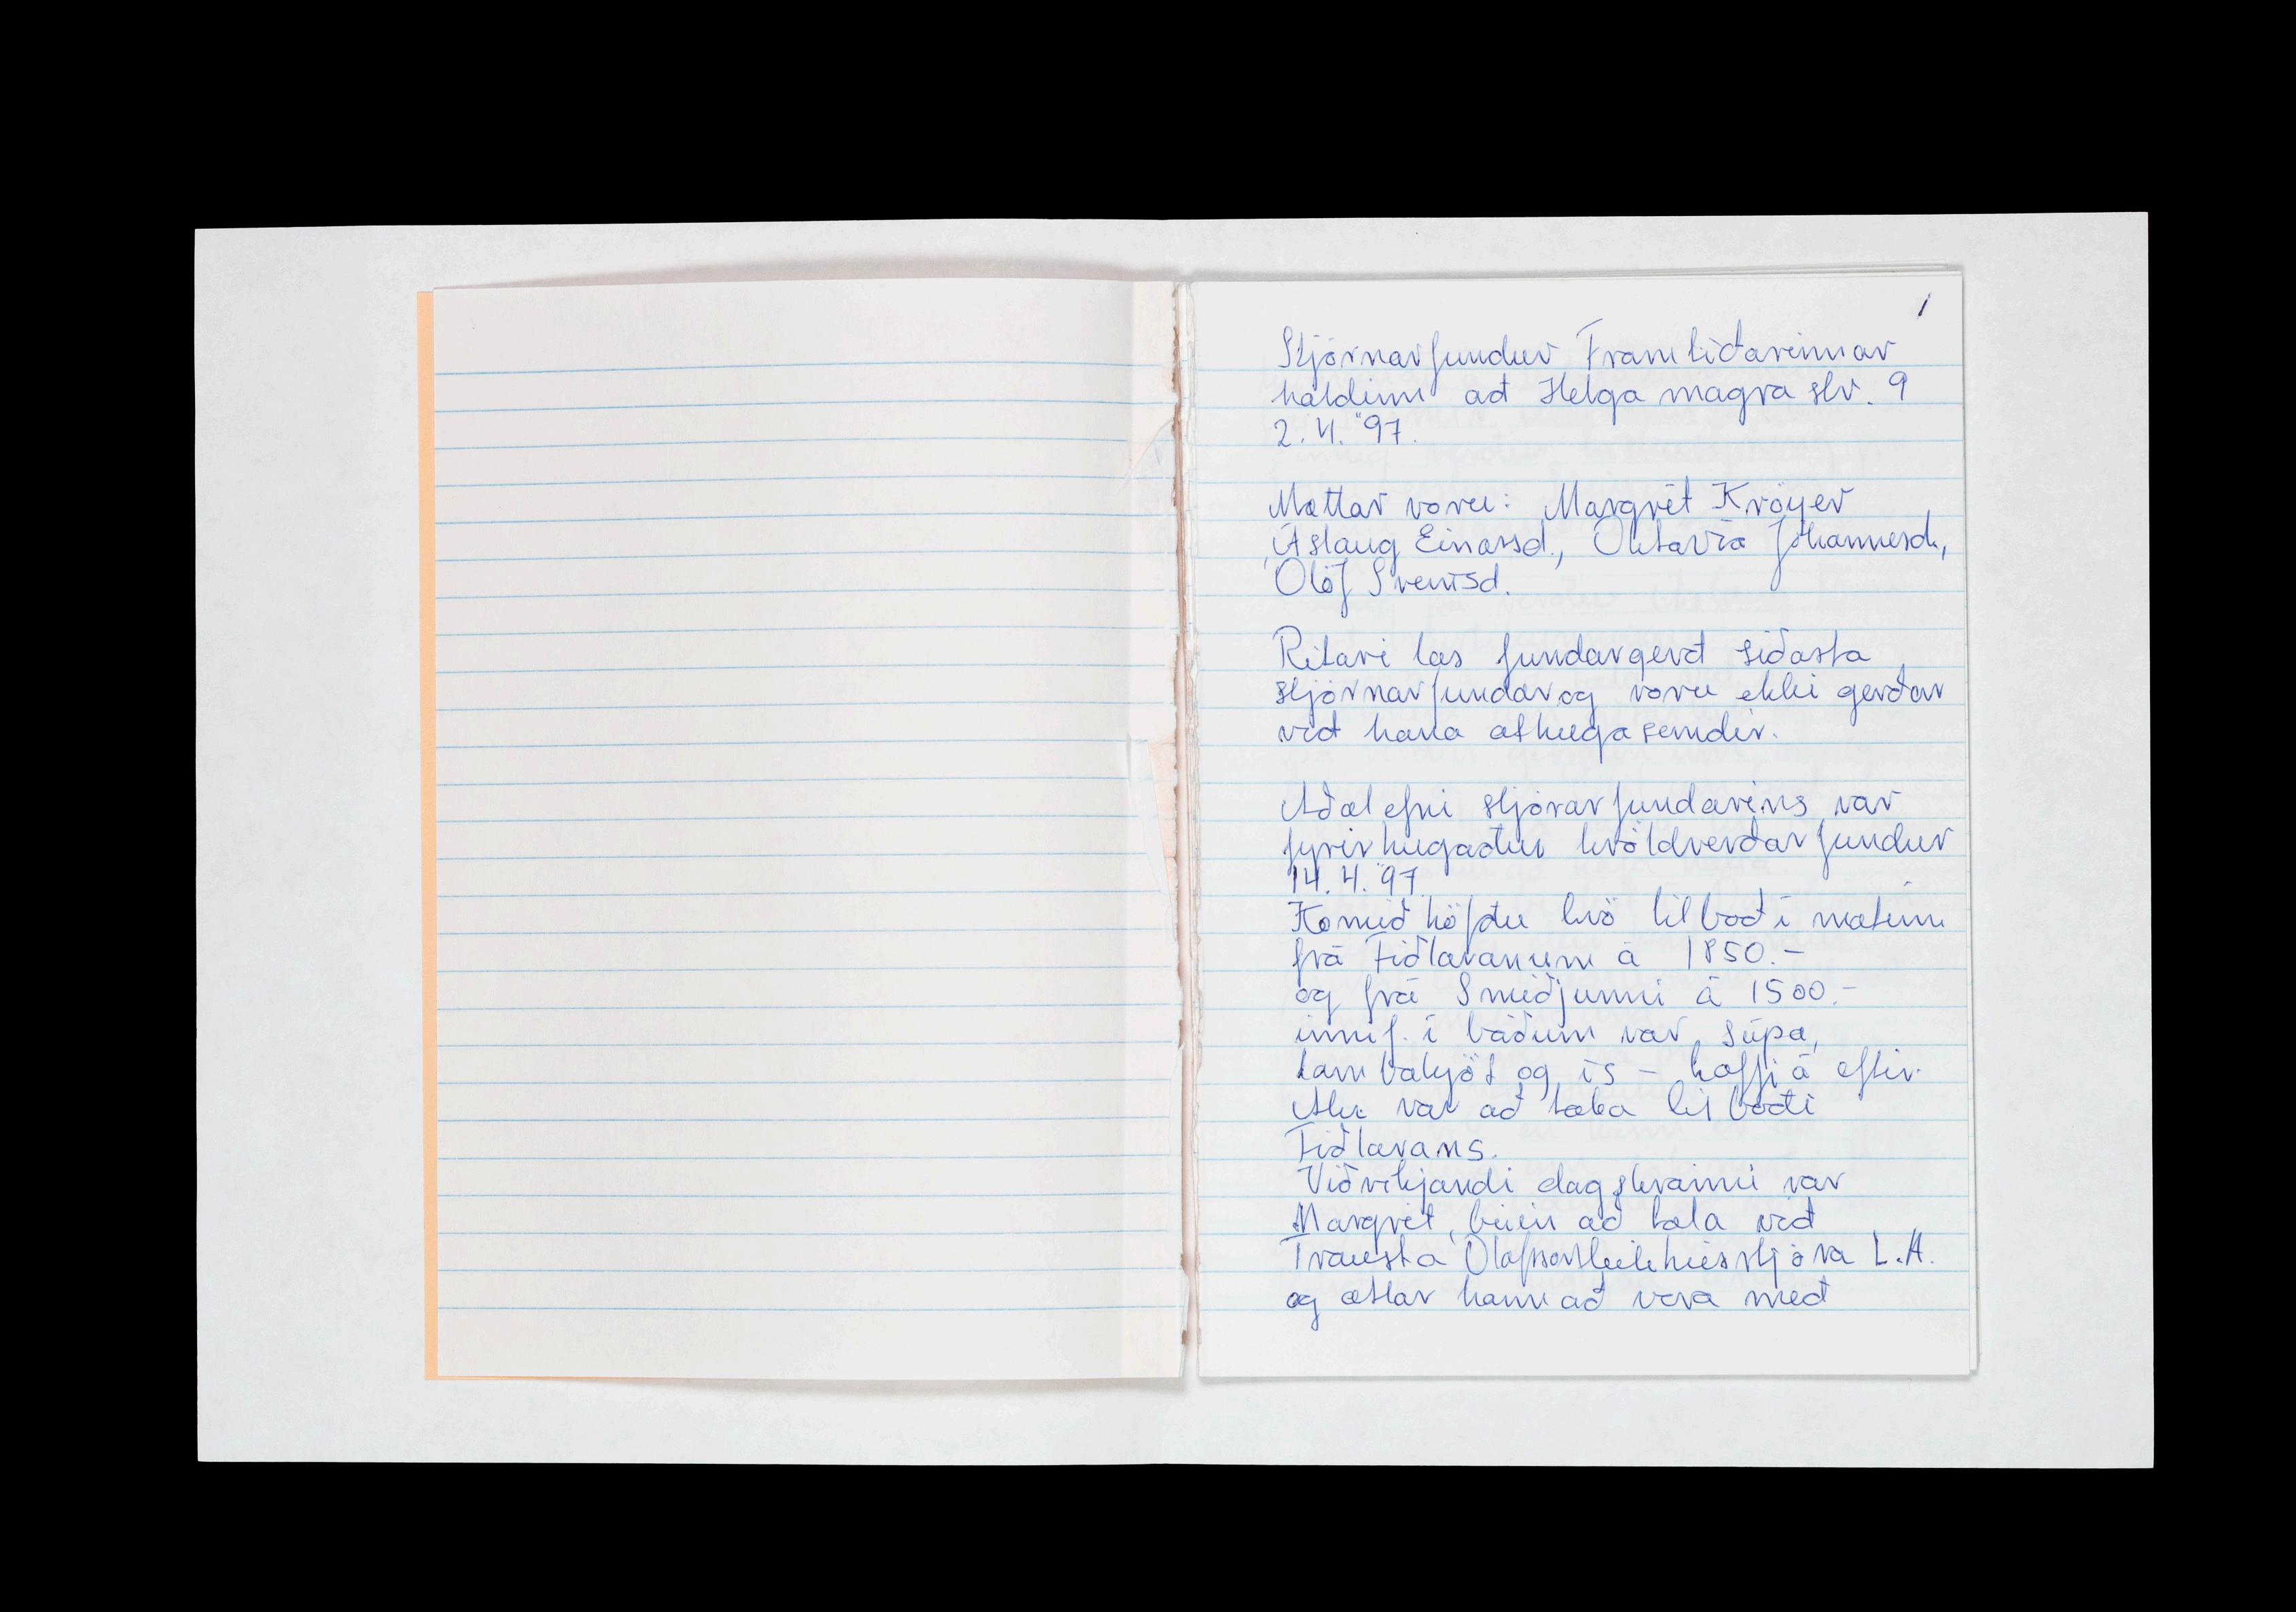 1
Stjórnarfundur Framtíðarinnar
haldinn að Helga magra str. 9
2.4. "97.
Mættar voru: Margrét Kröyer
Áslaug Einarsd., Oktavía Jóhannesd.,
Ólöf Sveinsd.
Ritari las fundargerð síðasta
stjórnarfundar og voru ekki gerðar
við hana athugasemdir.
Aðalefni stjórarfundarins var
fyrirhugaður kvöldverðarfundur
14.4. "97.
Komið höfðu tvö tilboð í matinn
frá Fiðlaranum á 1850.-
og frá Smiðjunni á 1500.-
innif. í báðum var súpa,
lambakjöt og ís - kaffi á eftir.
Ákv. var að taka tilboði
Fiðlarans.
Viðvíkjandi dagskránni var
Margrét búin að tala við
Trausta Ólafsson leikhússtjóra L.A.
og ætlar hann að vera með